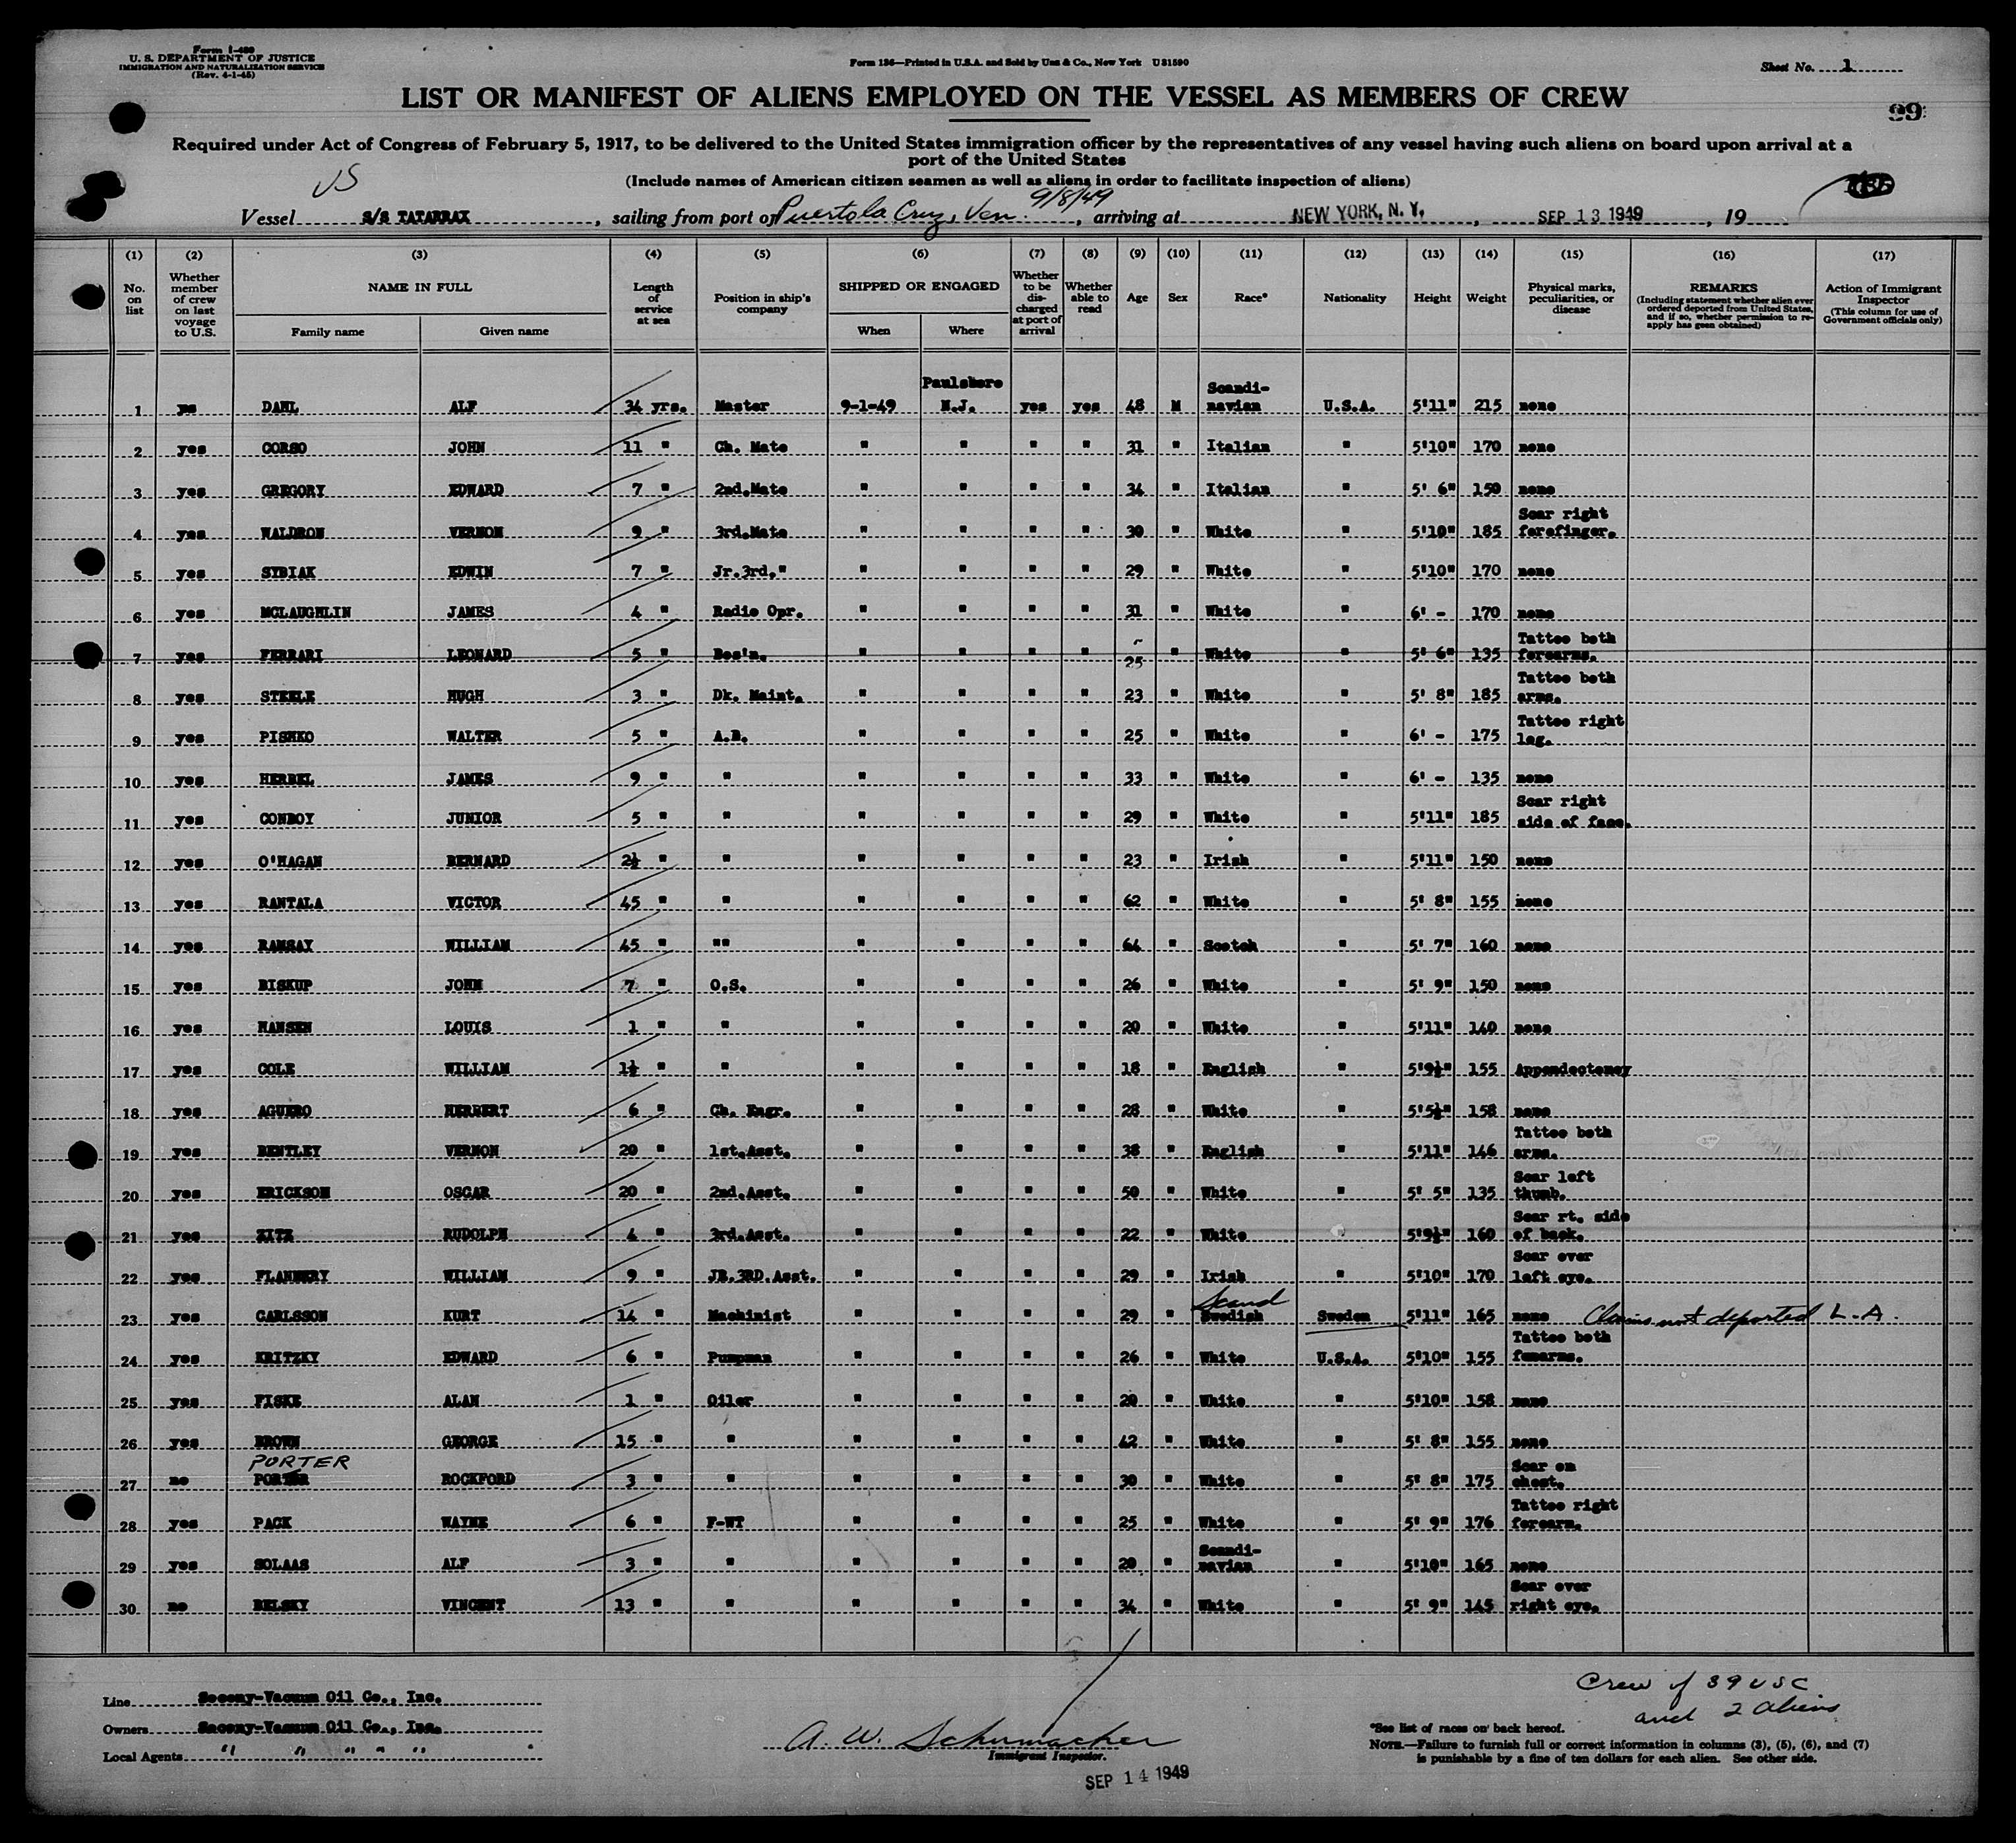 Form I-489
U. S. DEPARTMENT OF JUSTICE
IMMIGRATION AND NATURALIZATION SERVICE
(Rev. 4-1-45)
Form 136—Printed in U.S.A. and Sold by Unz & Co., New York U 31590
Sheet No. 1
LIST OR MANIFEST OF ALIENS EMPLOYED ON THE VESSEL AS MEMBERS OF CREW
99
Required under Act of Congress of February 5, 1917, to be delivered to the United States immigration officer by the representatives of any vessel having such aliens on board upon arrival at a
port of the United States
US
(Include names of American citizen seamen as well as aliens in order to facilitate inspection of aliens)
Vessel S/S TATARRAX, sailing from port of Puerto la Cruz, Ven. 9/8/49, arriving at NEW YORK, N. Y., SEP 13 1949, 19
(1) (2) (3) (4) (5) (6) (7) (8) (9) (10) (11) (12) (13) (14) (15) (16) (17)
No. on list
Whether member of crew on last voyage to U.S.
NAME IN FULL
Family name Given name
Length of service at sea
Position in ship's company
SHIPPED OR ENGAGED
When Where
Whether to be discharged at port of arrival
Whether able to read
Age
Sex
Race*
Nationality
Height
Weight
Physical marks, peculiarities, or disease
REMARKS
(Including statement whether alien ever ordered deported from United States, and if so, whether permission to reapply has been obtained)
Action of Immigrant Inspector
(This column for use of Government officials only)
1 DAHL ALF 34 yrs. Master 9-1-49 Paulsboro N.J. yes yes 48 M Scandi-navian U.S.A. 5'11" 215 none
2 yes CORSO JOHN 11 " Ch. Mate " " " " 31 " Italian " 5'10" 170 none
3 yes GREGORY EDWARD 7 " 2nd.Mate " " " " 34 " Italian " 5' 6" 150 none
4 yes WALDRON VERNON 9 " 3rd.Mate " " " " 30 " White " 5'10" 185 Scar right forefinger.
5 yes SYBIAK EDWIN 7 " Jr.3rd." " " " " 29 " White " 5'10" 170 none
6 yes MCLAUGHLIN JAMES 4 " Radio Opr. " " " " 31 " White " 6' - 170 none
7 yes FERRARI LEONARD 5 " Bos'n. " " " " 25 " White " 5' 6" 135 Tattoo both forearms.
8 yes STEELE HUGH 3 " Dk. Maint. " " " " 23 " White " 5' 8" 185 Tattoo both arms.
9 yes PISHKO WALTER 5 " A.B. " " " " 25 " White " 6' - 175 Tattoo right leg.
10 yes HERBEL JAMES 9 " " " " " " 33 " White " 6' - 135 none
11 yes CONBOY JUNIOR 5 " " " " " " 29 " White " 5'11" 185 Scar right side of face.
12 yes O'HAGAN BERNARD 2½ " " " " " " 23 " Irish " 5'11" 150 none
13 yes RANTALA VICTOR 45 " " " " " " 62 " White " 5' 8" 155 none
14 yes RAMSAY WILLIAM 45 " "" " " " " 64 " Scotch " 5' 7" 160 none
15 yes BISKUP JOHN 7 " O.S. " " " " 26 " White " 5' 9" 150 none
16 yes HANSEN LOUIS 1 " " " " " " 20 " White " 5'11" 140 none
17 yes COLE WILLIAM 1½ " " " " " " 18 " English " 5'9½" 155 Appendectomy
18 yes AGUERO HERBERT 6 " Ch. Engr. " " " " 28 " White " 5'5½" 158 none
19 yes BENTLEY VERNON 20 " 1st.Asst. " " " " 38 " English " 5'11" 146 Tattoo both arms.
20 yes ERICKSON OSCAR 20 " 2nd.Asst. " " " " 50 " White " 5' 5" 135 Scar left thumb.
21 yes ZITZ RUDOLPH 4 " 3rd.Asst. " " " " 22 " White " 5'9½" 160 Scar rt. side of back.
22 yes FLANNERY WILLIAM 9 " JR.3RD.Asst. " " " " 29 " Irish " 5'10" 170 Scar over left eye.
23 yes CARLSSON KURT 14 " Machinist " " " " 29 " Scand Swedish Sweden 5'11" 165 none Claims not deported L.A.
24 yes KRITZKY EDWARD 6 " Pumpman " " " " 26 " White U.S.A. 5'10" 155 Tattoo both forearms.
25 yes FISKE ALAN 1 " Oiler " " " " 20 " White " 5'10" 158 none
26 yes BROWN GEORGE 15 " " " " " " 42 " White " 5' 8" 155 none
PORTER
27 no PORTER ROCKFORD 3 " " " " " " 30 " White " 5' 8" 175 Scar on chest.
28 yes PACK WAYNE 6 " F-WT " " " " 25 " White " 5' 9" 176 Tattoo right forearm.
29 yes SOLAAS ALF 3 " " " " " " 20 " Scandi-navian " 5'10" 165 none
30 no BELSKY VINCENT 13 " " " " " " 34 " White " 5' 9" 145 Scar over right eye.
Crew of 39 USC
and 2 aliens
Line Socony-Vacuum Oil Co., Inc.
Owners Socony-Vacuum Oil Co., Inc.
Local Agents " " " " "
A. W. Schumacher
Immigrant Inspector.
SEP 14 1949
*See list of races on back hereof.
NOTE.—Failure to furnish full or correct information in columns (3), (5), (6), and (7)
is punishable by a fine of ten dollars for each alien. See other side.